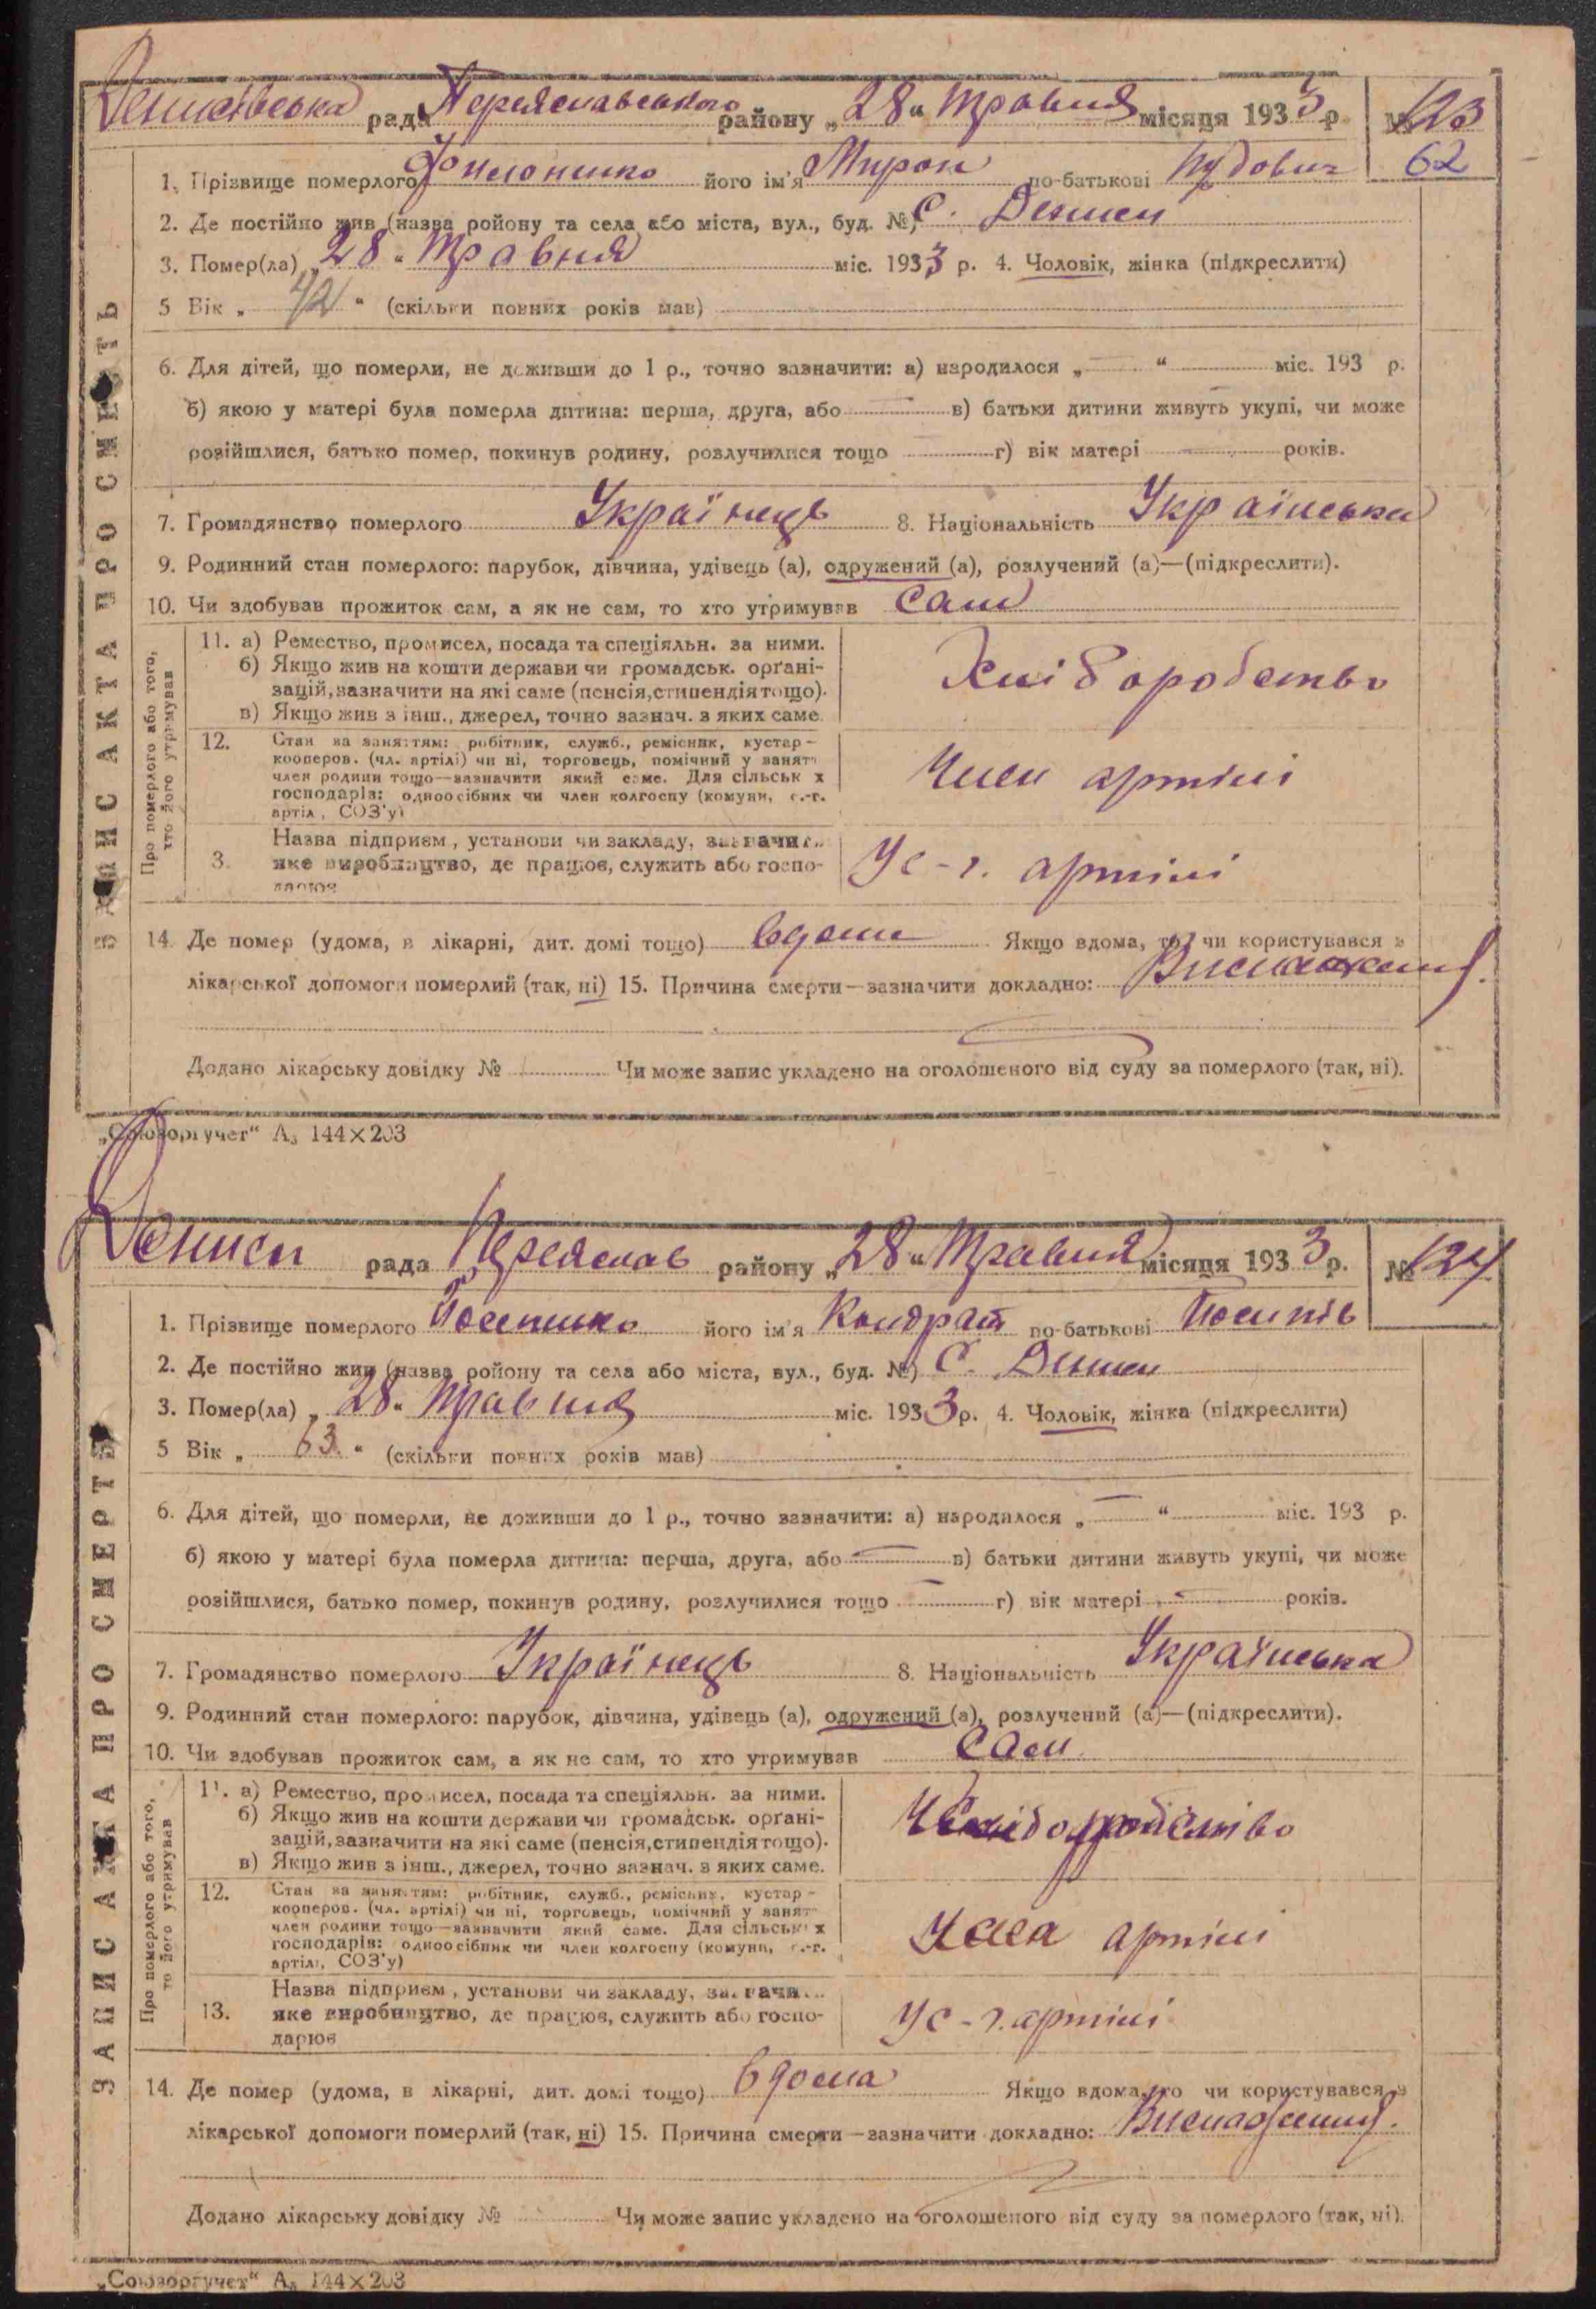 Денисівська рада Переяславського району „28“ травня місяця 1933 р. № 123
62
1. Прізвище померлого Филоненко його ім'я Мирон по-батькові Нудович
2. Де постійно жив (назва ройону та села або міста, вул., буд. №) С. Дениси
3. Помер(ла) „28“ травня міс. 1933 р. 4. Чоловік, жінка (підкреслити)
5 Вік „42“ (скільки повних років мав)
6. Для дітей, що померли, не доживши до 1 р., точно зазначити: а) народилося „—“ міс. 193 р.
б) якою у матері була померла дитина: перша, друга, або — в) батьки дитини живуть укупі, чи може
розійшлися, батько помер, покинув родину, розлучилися тощо г) вік матері років.
7. Громадянство померлого Українець 8. Національність Українська
9. Родинний стан померлого: парубок, дівчина, удівець (а), одружений (а), розлучений (а)—(підкреслити).
10. Чи здобував прожиток сам, а як не сам, то хто утримував Сам
ЗАПИС АКТА ПРО СМЕРТЬ
Про померлого або того, хто його утримував
11. а) Ремество, промисел, посада та спеціяльн. за ними.
б) Якщо жив на кошти держави чи громадськ. орґані-
зацій, зазначити на які саме (пенсія, стипендія тощо).
в) Якщо жив з інш., джерел, точно зазнач. з яких саме.
Хліборобство
12. Стан за заняттям: робітник, служб., ремісник, кустар-
кооперов. (чл. артілі) чи ні, торговець, помічний у занятт
член родини тощо—зазначити який саме. Для сільськ х
господарів: одноосібник чи член колгоспу (комуни, с.-г.
артіл, СОЗ'у)
Член артілі
3. Назва підприєм, установи чи закладу, зазначит
яке виробництво, де працює, служить або госпо-
дарює
У с-г. артілі
14. Де помер (удома, в лікарні, дит. домі тощо) вдома Якщо вдома, то чи користувався з
лікарської допомоги померлий (так, ні) 15. Причина смерти—зазначити докладно:
Додано лікарську довідку № Чи може запис укладено на оголошеного від суду за померлого (так, ні).
„Союзоргучет“ А₃ 144×203
Дениси рада Переяслав району „28“ травня місяця 1933 р. № 124
1. Прізвище померлого Йосипенко його ім'я Кондрат по-батькові Йосипів
2. Де постійно жив (назва ройону та села або міста, вул., буд. №) С. Дениси
3. Помер(ла) „28“ травня міс. 1933 р. 4. Чоловік, жінка (підкреслити)
5 Вік „63“ (скільки повних років мав)
6. Для дітей, що померли, не доживши до 1 р., точно зазначити: а) народилося „—“ міс. 193 р.
б) якою у матері була померла дитина: перша, друга, або — в) батьки дитини живуть укупі, чи може
розійшлися, батько помер, покинув родину, розлучилися тощо — г) вік матері — років.
7. Громадянство померлого Українець 8. Національність Українська
9. Родинний стан померлого: парубок, дівчина, удівець (а), одружений (а), розлучений (а)—(підкреслити).
10. Чи здобував прожиток сам, а як не сам, то хто утримував Сам
ЗАПИС АКТА ПРО СМЕРТЬ
Про померлого або того, то його утримував
11. а) Ремество, промисел, посада та спеціяльн. за ними.
б) Якщо жив на кошти держави чи громадськ. орґані-
зацій, зазначити на які саме (пенсія, стипендія тощо).
в) Якщо жив з інш., джерел, точно зазнач. з яких саме.
12. Стан за заняттям: робітник, служб., ремісник, кустар-
кооперов. (чл. артілі) чи ні, торговець, помічний у занятт
член родини тощо—зазначити який саме. Для сільськ х
господарів: одноосібник чи член колгоспу (комуни, с.-г.
артіл, СОЗ'у)
Член артілі
13. Назва підприєм, установи чи закладу, зазначи
яке виробництво, де працює, служить або госпо-
дарює
У с-г. артілі
14. Де помер (удома, в лікарні, дит. домі тощо) вдома Якщо вдома, то чи користувався з
лікарської допомоги померлий (так, ні) 15. Причина смерти—зазначити докладно: Виснаження
Додано лікарську довідку № Чи може запис укладено на оголошеного від суду за померлого (так, ні).
„Союзоргучет“ А₃ 144×203